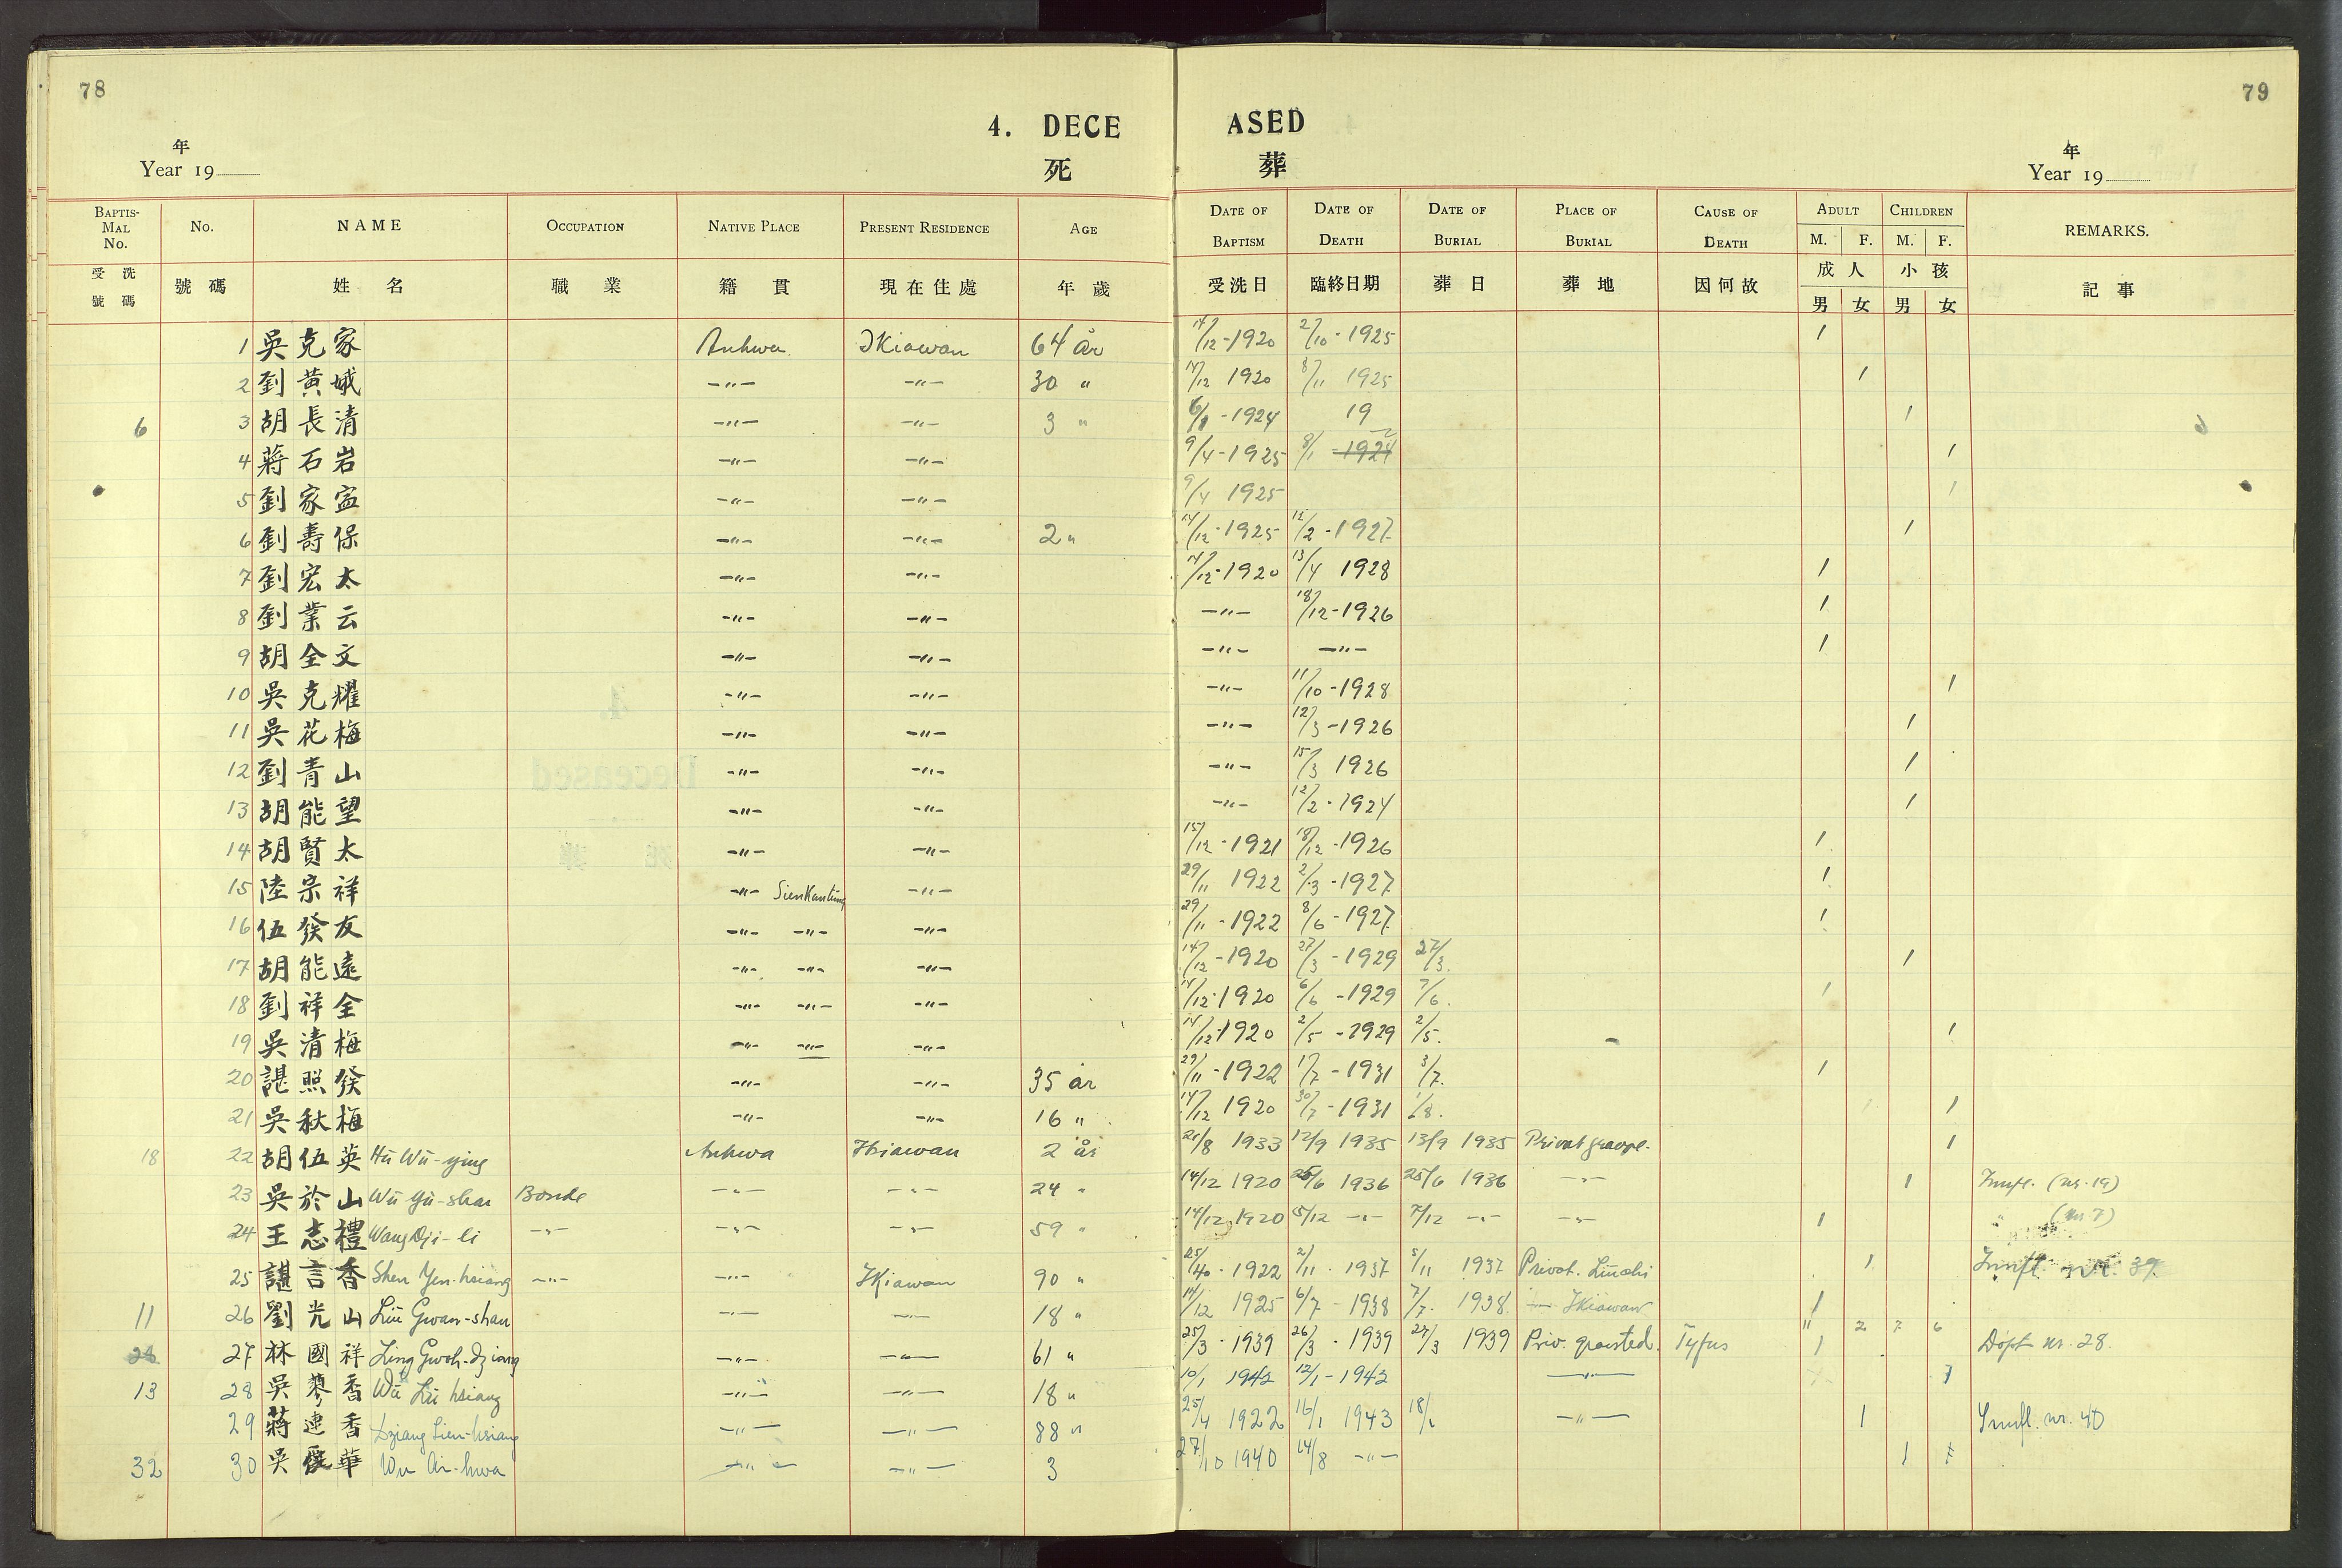 78
79
4. DECE ASED
死 葬
年 年
Year 19 Year 19
BAPTIS-MAL No. No. NAME OCCUPATION NATIVE PLACE PRESENT RESIDENCE AGE DATE OF BAPTISM DATE OF DEATH DATE OF BURIAL PLACE OF BURIAL CAUSE OF DEATH ADULT M. F. CHILDREN M. F. REMARKS.
受洗號碼 號碼 姓名 職業 籍貫 現在住處 年歲 受洗日 臨終日期 葬日 葬地 因何故 成人 男 女 小孩 男 女 記事
1 吳克家 Anhwa Ikiawan 64 år 14/12-1920 2/10-1925 1
2 劉黃娥 -"- -"- 30 " 14/12 1920 8/11 1925 1
6 3 胡長清 -"- -"- 3 " 6/1-1924 19 1
4 蔣石岩 -"- -"- 9/4-1925 8/1 -1924 1
5 劉家 -"- -"- 9/4 1925 1
6 劉壽保 -"- -"- 2 " 14/12-1925 12/2-1927 1
7 劉宏太 -"- -"- 14/12-1920 13/4 1928 1
8 劉業云 -"- -"- -"- 18/12-1926 1
9 胡全文 -"- -"- -"- -"- 1
10 吳克耀 -"- -"- -"- 11/10-1928 1
11 吳花梅 -"- -"- -"- 12/3-1926 1
12 劉青山 -"- -"- -"- 15/3 1926 1
13 胡能望 -"- -"- -"- 12/2-1924 1
14 胡賢太 -"- -"- 15/12-1921 18/12-1926 1
15 陸宗祥 -"- Sienkantung -"- 29/11 1922 2/3-1927 1
16 伍發友 -"- -"- -"- 29/11-1922 8/6-1927 1
17 胡能遠 -"- -"- -"- 14/12-1920 27/3-1929 27/3. 1
18 劉祥全 -"- -"- -"- 14/12-1920 6/6-1929 7/6. 1
19 吳清梅 -"- -"- -"- 14/12-1920 2/5-1929 2/5. 1
20 諶照發 -"- -"- 35 år 29/11-1922 1/7-1931 3/7. 1
21 吳秋梅 -"- -"- 16 " 14/12 1920 30/7-1931 1/8. 1
18 22 胡伍英 Hu Wu-ying Anhwa Ikiawan 2 år 20/8 1933 12/9 1935 13/9 1935 Privat gravpl. 1
23 吳於山 Wu Yü-shan Bonde -"- -"- 24 " 14/12 1920 25/6 1936 25/6 1936 -"- 1 Innfl. (nr. 19)
24 王志禮 Wang Dji-li -"- -"- -"- 59 " 14/12 1920 5/12 -"- 7/12 -"- -"- 1 " (nr 7)
25 諶言香 Shen Yen-hsiang -"- -"- Ikiawan 90 " 25/10-1922 2/11-1937 5/11 1937 Privat. 1 Innfl. nr. 39
11 26 劉光山 Liu Gwan-shan -"- -"- 18 " 14/12 1925 6/7-1938 7/7-1938. -"- Ikiawan 1
11 2 7 6
27 林國祥 Ling Gwoh-dziang -"- -"- 61 " 25/3-1939 26/3-1939 27/3 1939 Priv. gravsted. Tyfus 1 Döpt nr. 28.
13 28 吳蓼香 Wu Liu hsiang -"- -"- 18 " 10/1 1942 12/1-1942 -"- 1
29 蔣連香 Dziang Lien-hsiang -"- -"- 88 " 25/4 1922 16/1 1943 18/1 -"- 1 Innfl. nr. 40
32 30 吳愛華 Wu Ai-hwa -"- -"- 3 27/10 1940 14/8 -"- 1